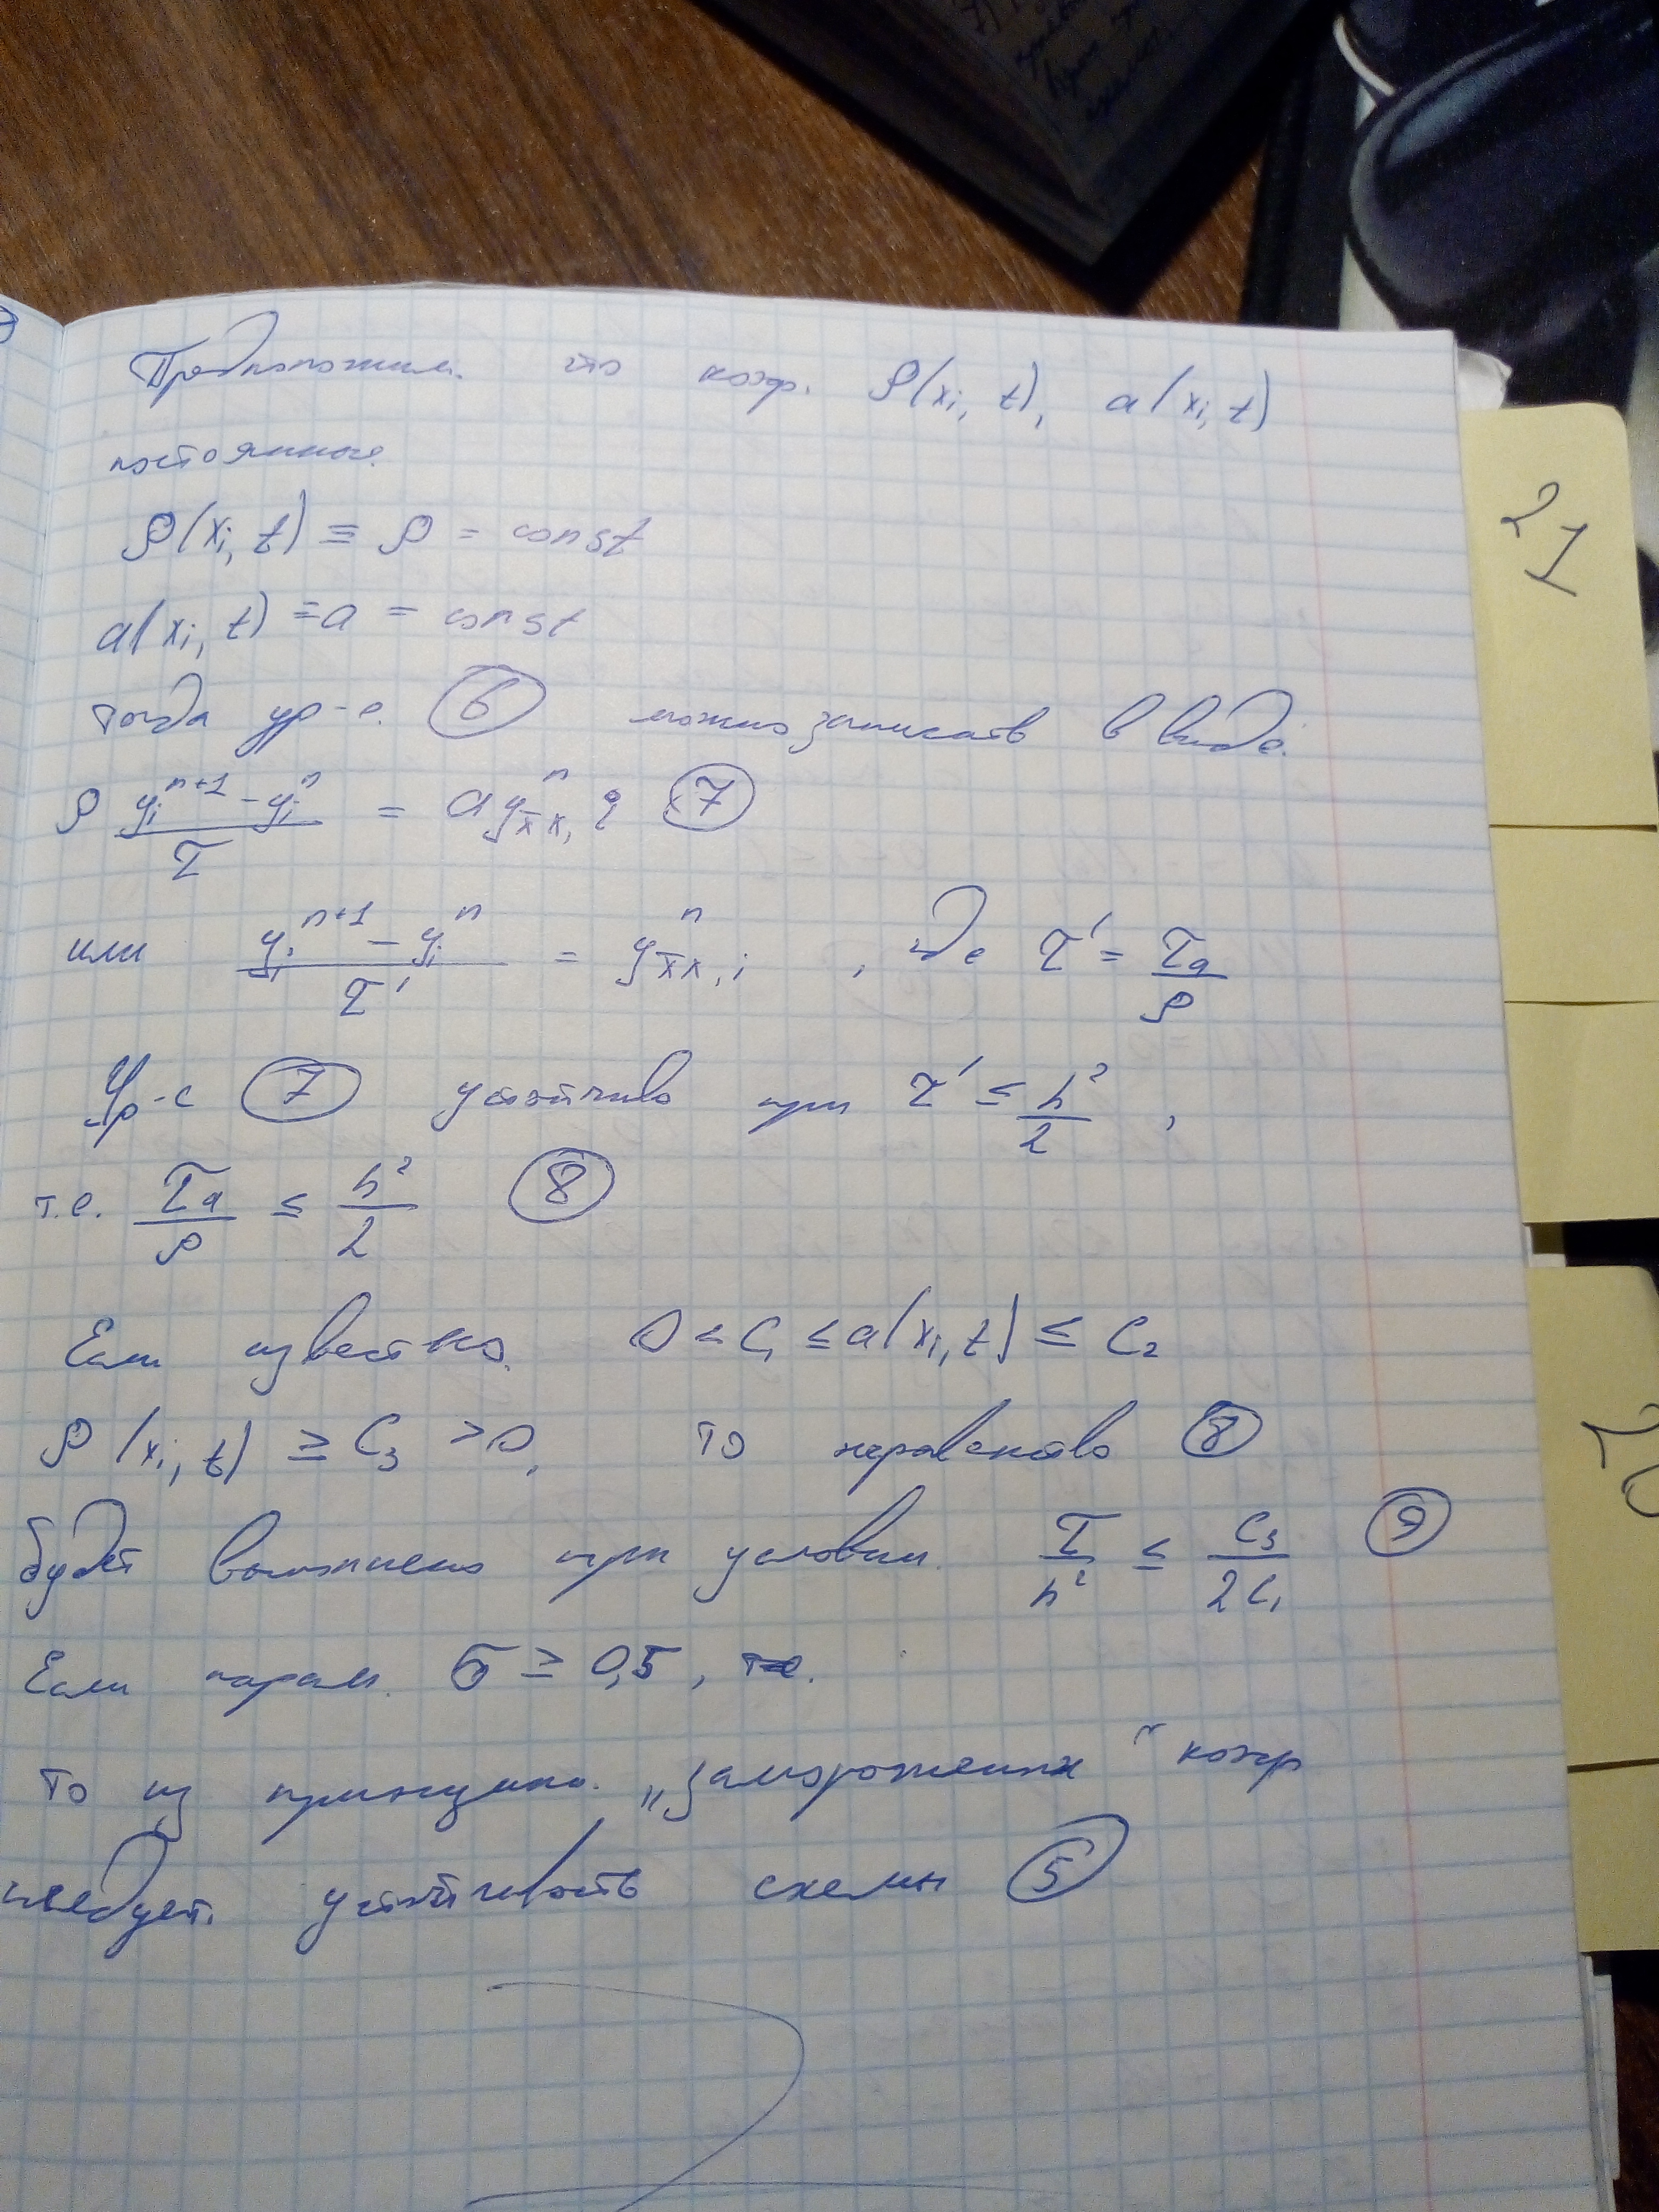 Предположим. что коэф. ρ(xᵢ, t), a(xᵢ, t)
постоянные.
ρ(xᵢ, t) ≡ ρ = const
a(xᵢ, t) ≡ a = const
тогда ур-е. ⑥ можно записать в виде.
ρ (yᵢⁿ⁺¹ - yᵢⁿ)/τ = a yⁿ_{x̄x, i} ⑦
или (yᵢⁿ⁺¹ - yᵢⁿ)/τ' = yⁿ_{x̄x, i} , где τ' = τa/ρ
Ур-е ⑦ устойчиво при τ' ≤ h²/2 ,
т.е. τa/ρ ≤ h²/2 ⑧
Если известно. 0 < C₁ ≤ a(xᵢ, t) ≤ C₂
ρ(xᵢ, t) ≥ C₃ > 0, то неравенство ⑧
будет выполнено при условии. τ/h² ≤ C₃/2C₁ ⑨
Если парам. σ ≥ 0,5 ,
то из принципа. „замороженных“ коэф
следует. устойчивость схемы ⑤
21
20